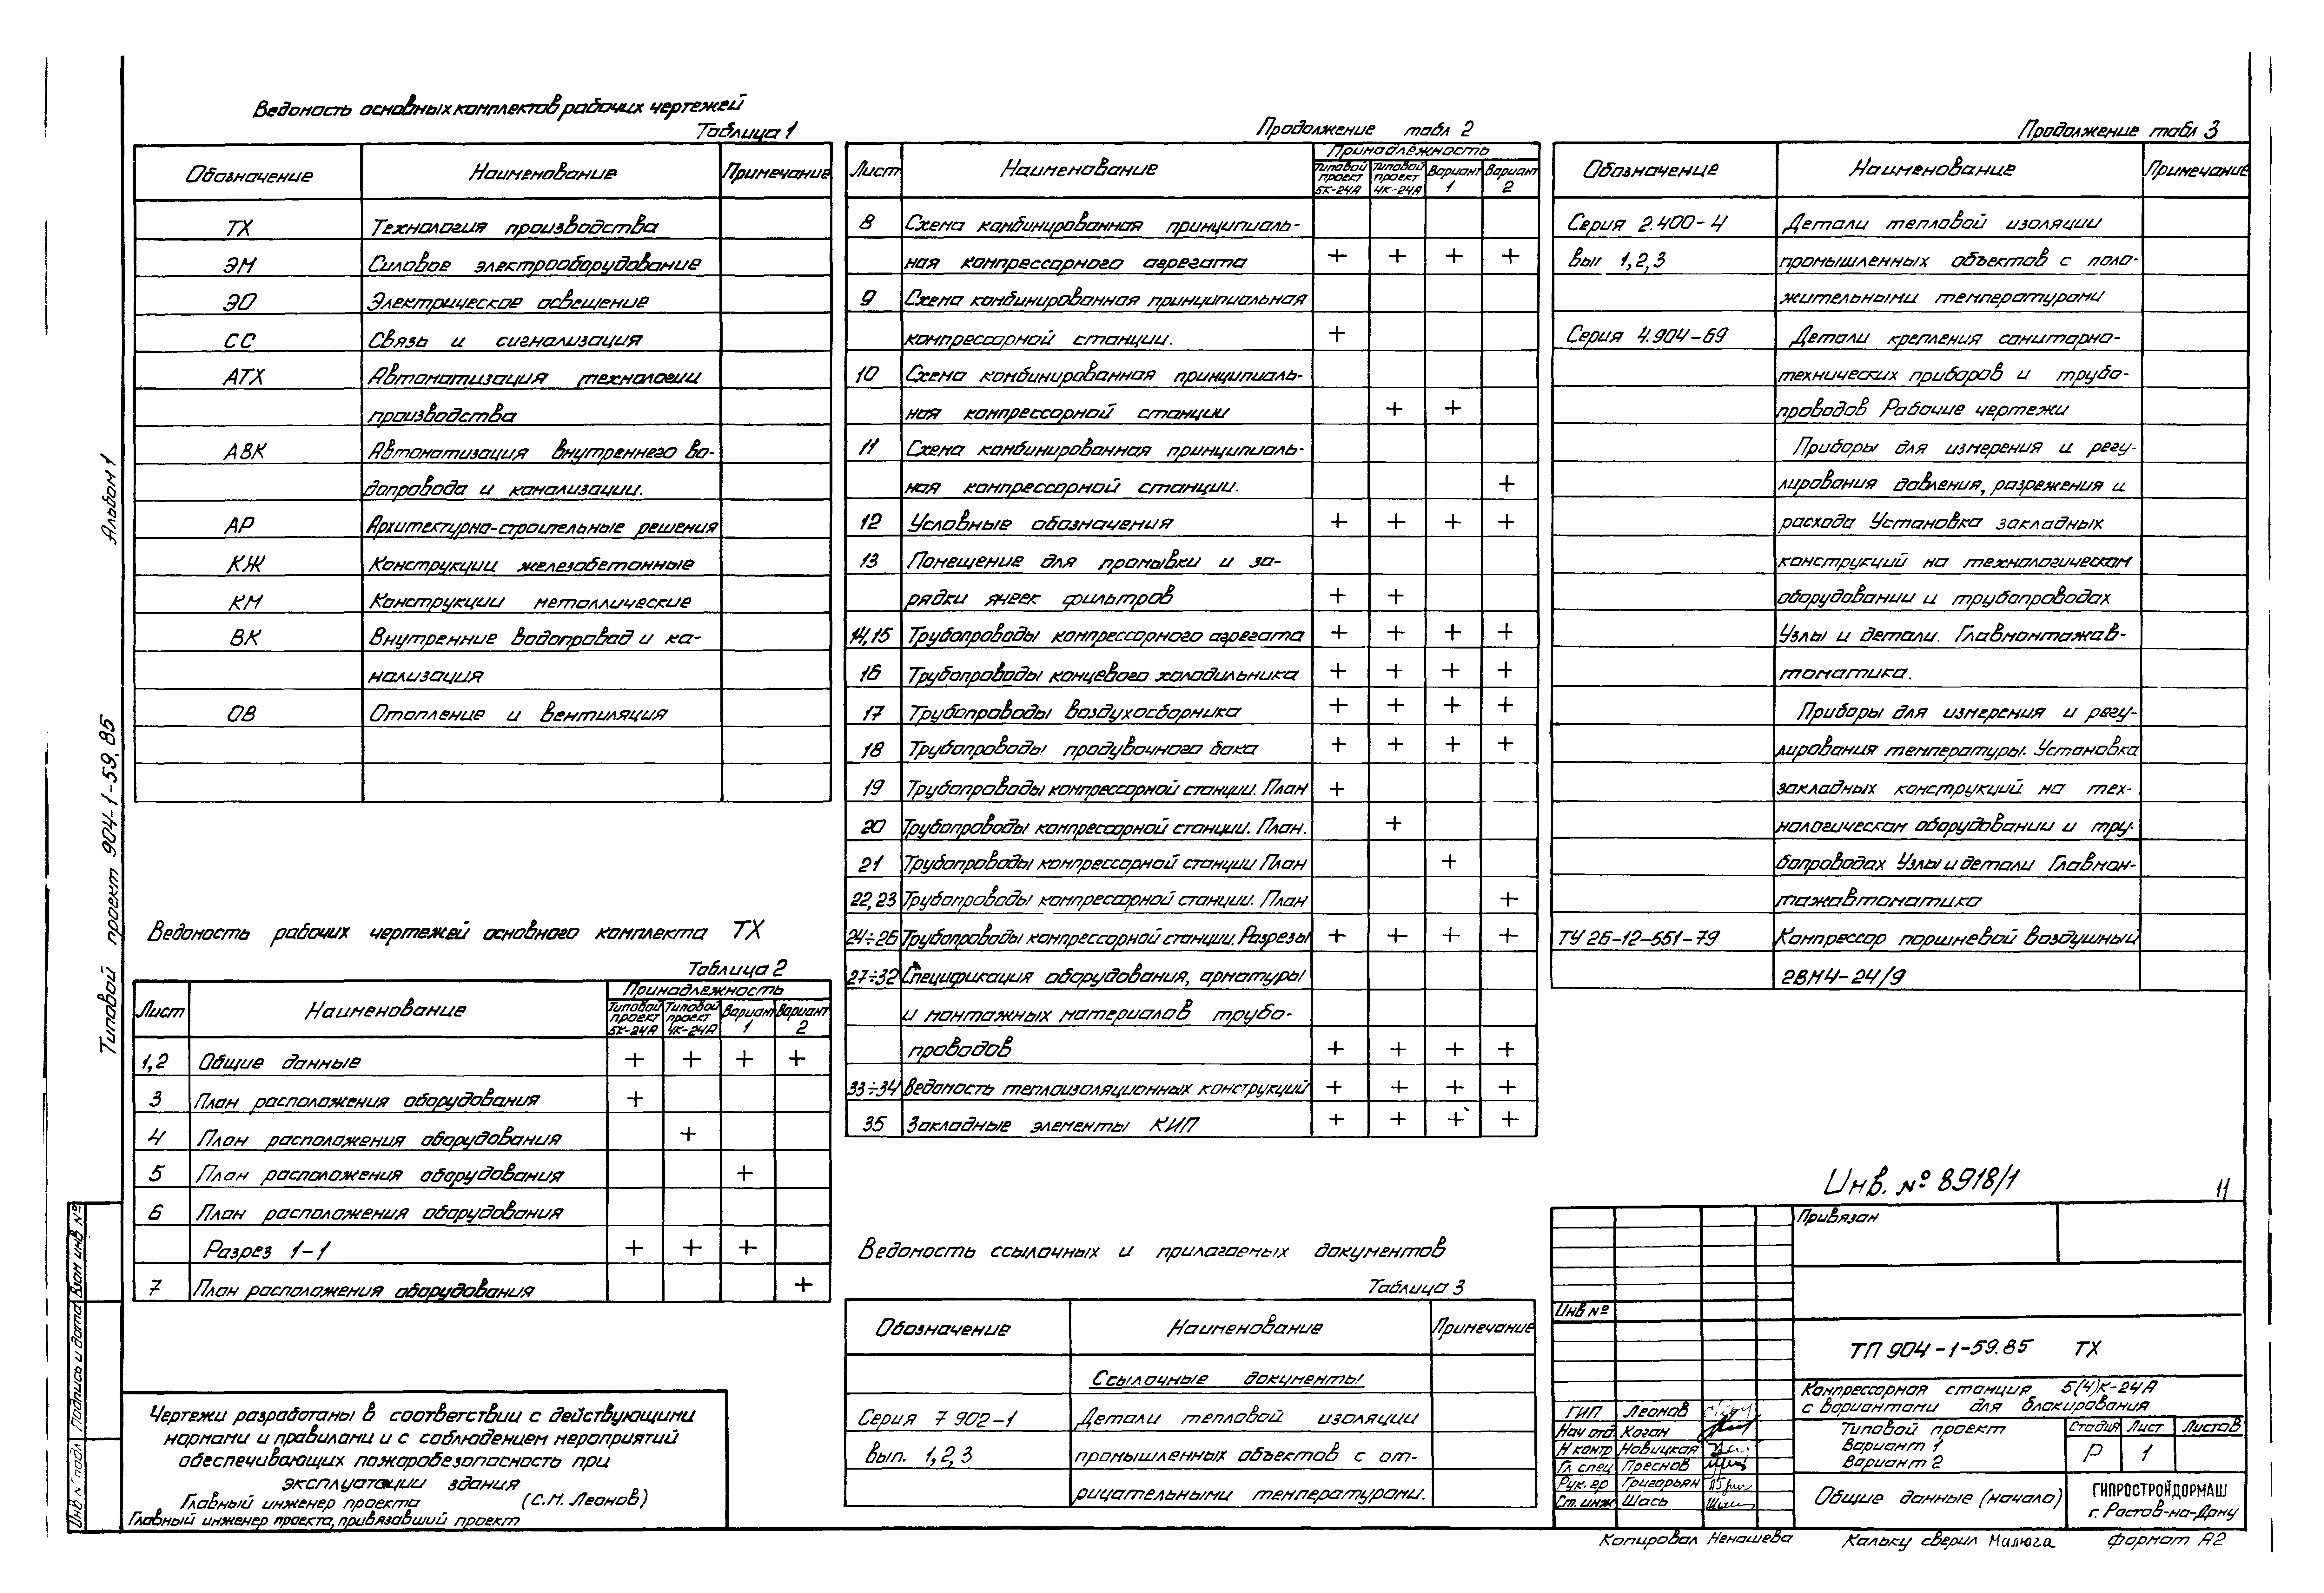 Ведомость основных комплектов рабочих чертежей
Таблица 1
Обозначение Наименование Примечание
ТХ Технология производства
ЭМ Силовое электрооборудование
ЭО Электрическое освещение
СС Связь и сигнализация
АТХ Автоматизация технологии
производства
АВК Автоматизация внутреннего во-
допровода и канализации.
АР Архитектурно-строительные решения
КЖ Конструкции железобетонные
КМ Конструкции металлические
ВК Внутренние водопровод и ка-
нализация
ОВ Отопление и вентиляция
Ведомость рабочих чертежей основного комплекта ТХ
Таблица 2
Лист Наименование Принадлежность
Типовой проект 5К-24А Типовой проект 4К-24А Вариант 1 Вариант 2
1,2 Общие данные + + + +
3 План расположения оборудования +
4 План расположения оборудования +
5 План расположения оборудования +
6 План расположения оборудования
Разрез 1-1 + + +
7 План расположения оборудования +
Чертежи разработаны в соответствии с действующими
нормами и правилами и с соблюдением мероприятий
обеспечивающих пожаробезопасность при
эксплуатации здания
Главный инженер проекта (С.М. Леонов)
Главный инженер проекта, привязавший проект
Продолжение табл 2
Лист Наименование Принадлежность
Типовой проект 5К-24А Типовой проект 4К-24А Вариант 1 Вариант 2
8 Схема комбинированная принципиаль-
ная компрессорного агрегата + + + +
9 Схема комбинированная принципиальная
компрессорной станции. +
10 Схема комбинированная принципиаль-
ная компрессорной станции + +
11 Схема комбинированная принципиаль-
ная компрессорной станции. +
12 Условные обозначения + + + +
13 Помещение для промывки и за-
рядки ячеек фильтров + +
14,15 Трубопроводы компрессорного агрегата + + + +
16 Трубопроводы концевого холодильника + + + +
17 Трубопроводы воздухосборника + + + +
18 Трубопроводы продувочного бака + + + +
19 Трубопроводы компрессорной станции. План +
20 Трубопроводы компрессорной станции. План. +
21 Трубопроводы компрессорной станции План +
22,23 Трубопроводы компрессорной станции. План +
24÷26 Трубопроводы компрессорной станции. Разрезы + + + +
27÷32 Спецификация оборудования, арматуры
и монтажных материалов трубо-
проводов + + + +
33÷34 Ведомость теплоизоляционных конструкций + + + +
35 Закладные элементы КИП + + + +
Ведомость ссылочных и прилагаемых документов
Таблица 3
Обозначение Наименование Примечание
Ссылочные документы
Серия 7 902-1 Детали тепловой изоляции
вып. 1,2,3 промышленных объектов с от-
рицательными температурами.
Продолжение табл 3
Обозначение Наименование Примечание
Серия 2.400-4 Детали тепловой изоляции
вып 1,2,3 промышленных объектов с поло-
жительными температурами
Серия 4.904-69 Детали крепления санитарно-
технических приборов и трубо-
проводов Рабочие чертежи
Приборы для измерения и регу-
лирования давления, разрежения и
расхода Установка закладных
конструкций на технологическом
оборудовании и трубопроводах
Узлы и детали. Главмонтажав-
томатика.
Приборы для измерения и регу-
лирования температуры. Установка
закладных конструкций на тех-
нологическом оборудовании и тру-
бопроводах Узлы и детали Главмон-
тажавтоматика
ТУ 26-12-551-79 Компрессор поршневой воздушный
2ВМ4-24/9
Инв. № 8918/1
11
Привязан
Инв №
ТП 904-1-59.85 ТХ
Компрессорная станция 5(4)К-24А
с вариантами для блокирования
ГИП Леонов
Нач отд. Коган
Н контр Новицкая
Гл спец Преснов
Рук. гр Григорьян
Ст. инж Шась
Типовой проект
Вариант 1
Вариант 2
Стадия Лист Листов
Р 1
Общие данные (начало)
ГИПРОСТРОЙДОРМАШ
г. Ростов-на-Дону
Копировал Ненашева
Кальку сверил Милюга
Формат А2
Альбом 1
Типовой проект 904-1-59.85
Взам инв №
Подпись и дата
Инв № подл